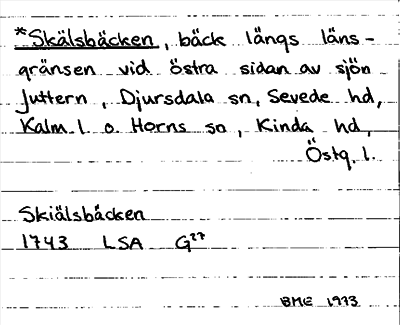 *Skälsbäcken, bäck längs läns-
gränsen vid östra sidan av sjön
Juttern, Djursdala sn, Sevede hd,
Kalm. l. o. Horns sn, Kinda hd,
Östg. l.
Skiälsbäcken
1743 LSA G²⁷
BME 1973